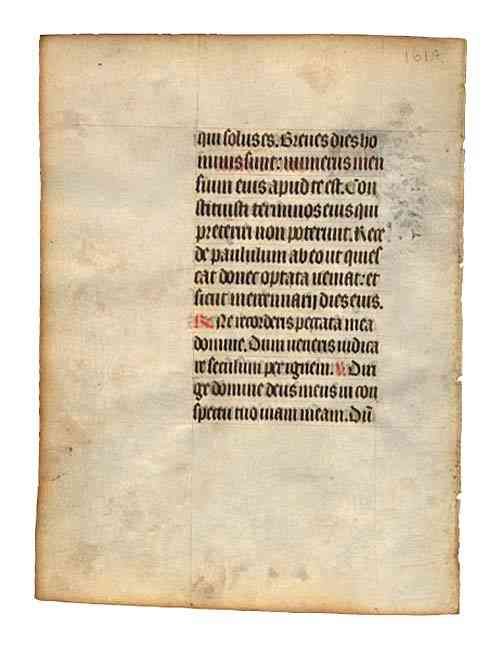 1617
qui solus es. Breues dies ho
minis sunt: numerus men
sium eius apud te est. Con
stituisti terminos eius qui
preteriri non poterunt. Rece
de paululum ab eo ut quies
cat donec optata ueniat: et
sicut mercennarij dies eius.
R. Ne recorderis peccata mea
domine. Dum ueneris iudica
re seculum per ignem. V. Diri
ge domine deus meus in con
spectu tuo uiam meam. Dū